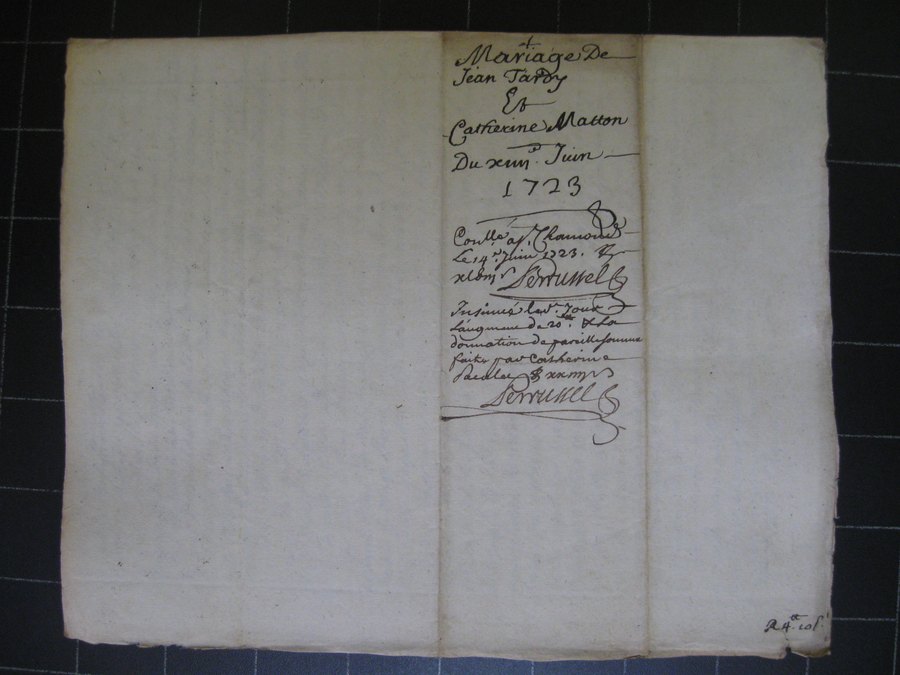 Mariage De
Jean Tardy
Et
Catherine Matton
Du xiiii.e Juin
1723
Conllé a St. Chamond
Le 14e. Juin 1723.
Perrussel
Insinué led. Jour
L'augment de 20tt. & La
donnation de pareille somme
faite par Catherine
Perrussel
R 4tt. 10s.